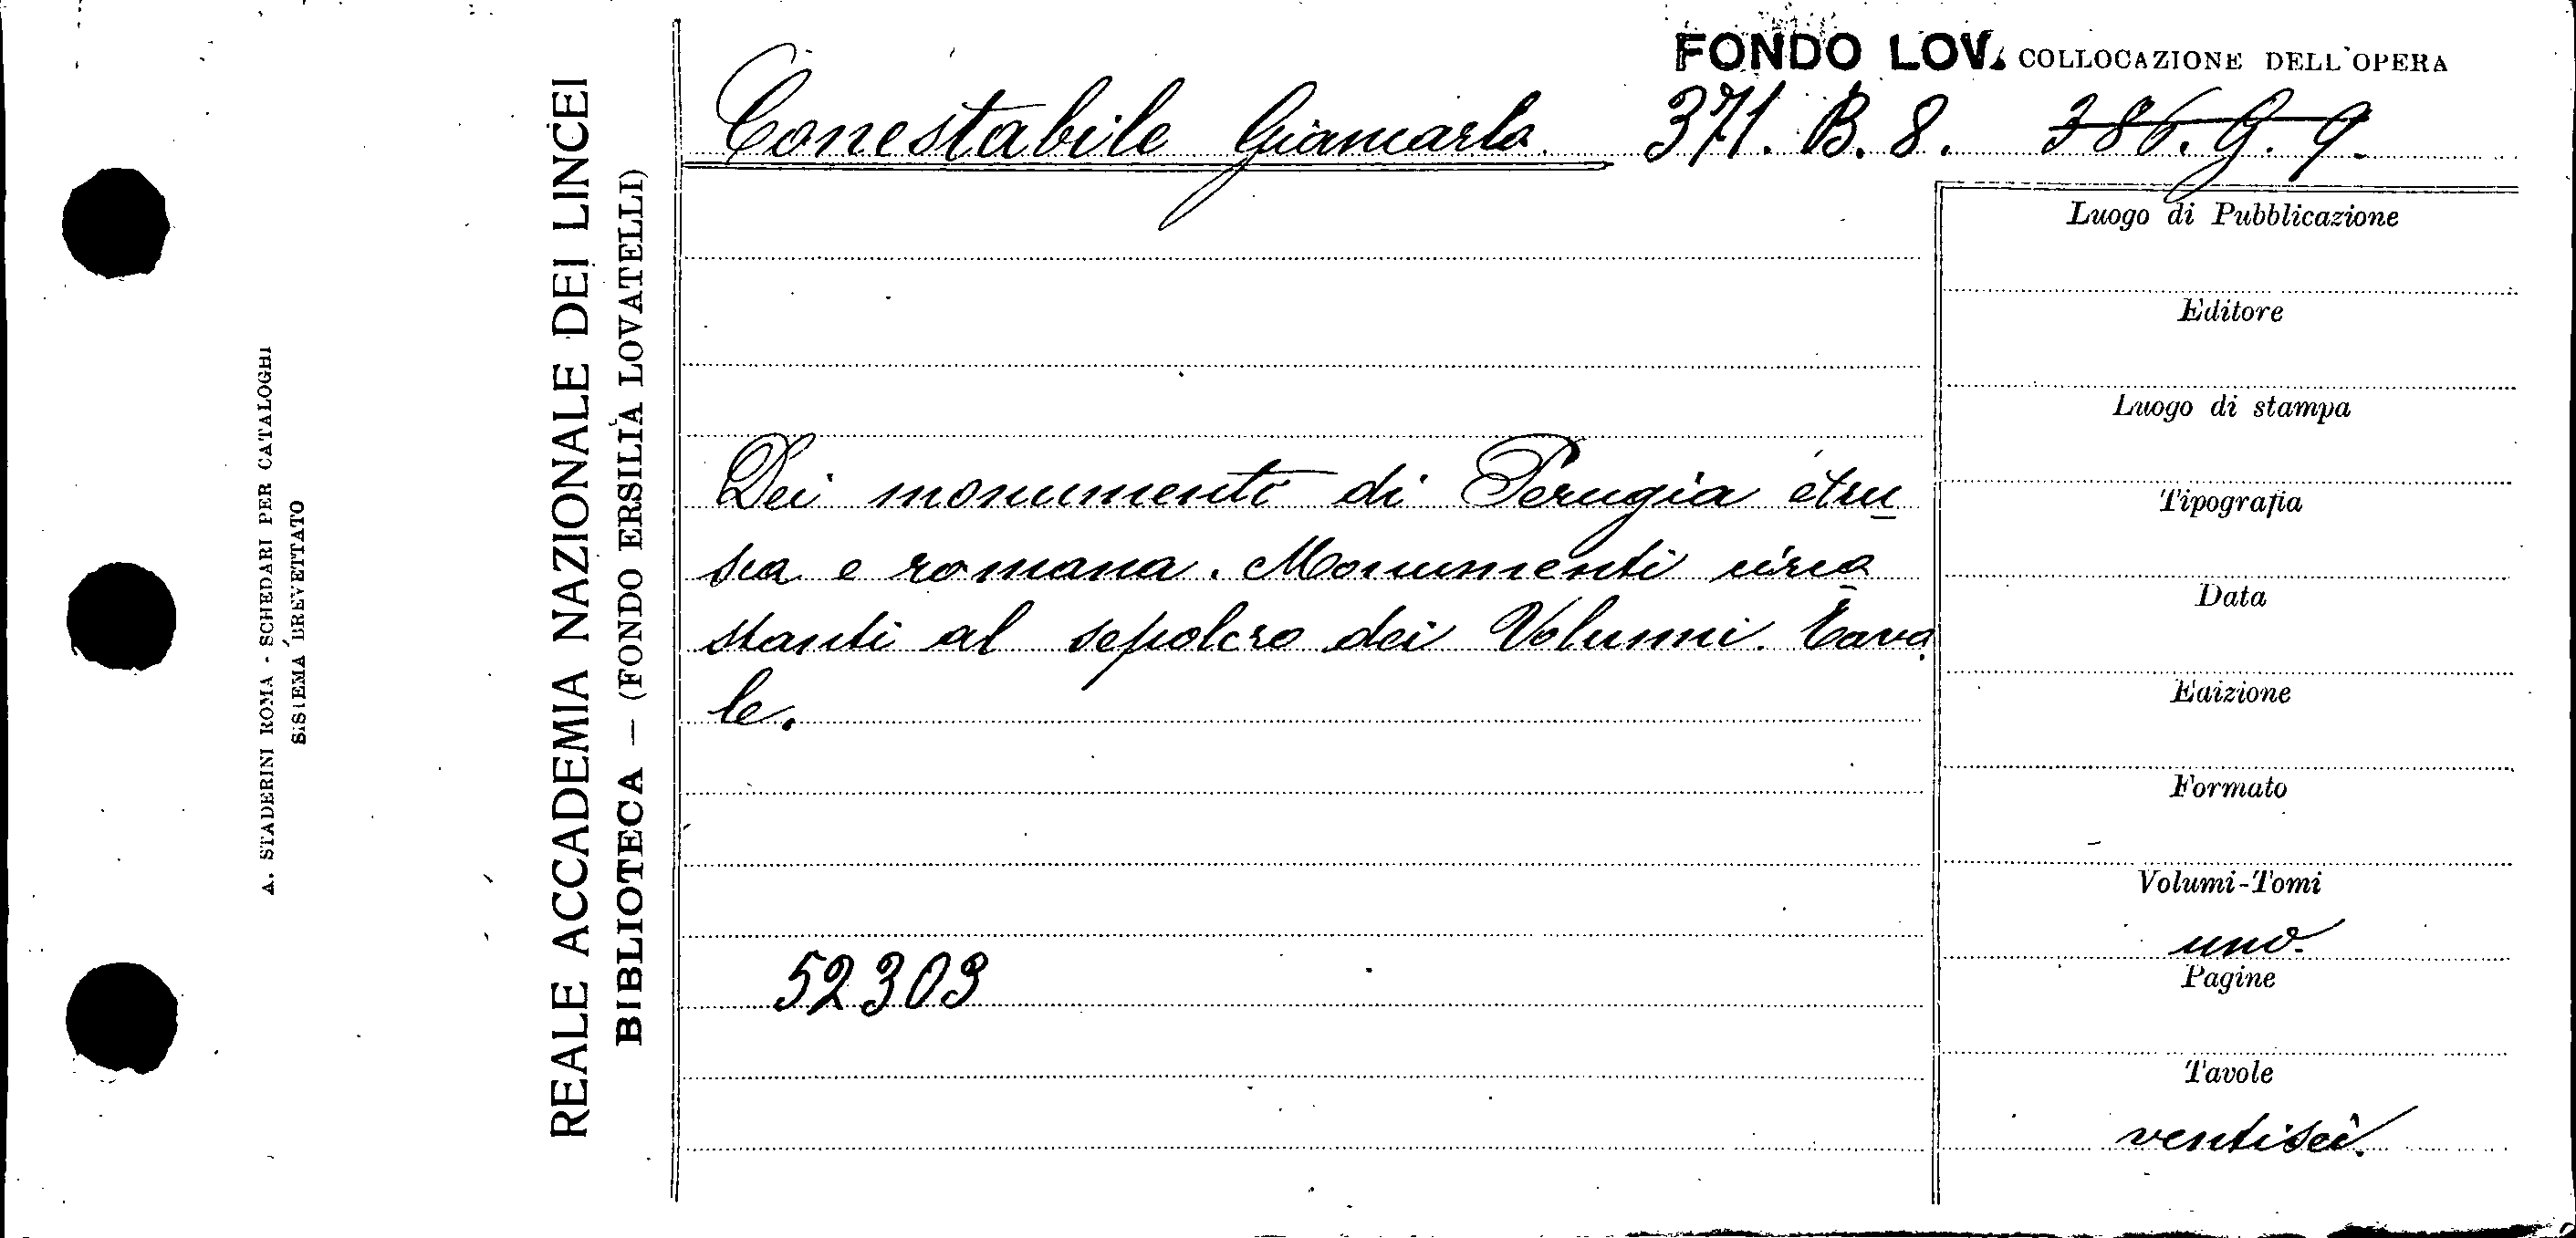 A. STADERINI ROMA - SCHEDARI PER CATALOGHI
SISTEMA BREVETTATO
REALE ACCADEMIA NAZIONALE DEI LINCEI
BIBLIOTECA — (FONDO ERSILIA LOVATELLI)
FONDO LOV. COLLOCAZIONE DELL'OPERA
Conestabile Giancarlo 371. B. 8. 386. G. 9.
Dei monumenti di Perugia etru
sca e romana. Monumenti circo
stanti al sepolcro dei Volunni. Tavo
le.
52303
Luogo di Pubblicazione
Editore
Luogo di stampa
Tipografia
Data
Edizione
Formato
Volumi-Tomi
uno.
Pagine
Tavole
ventisei.